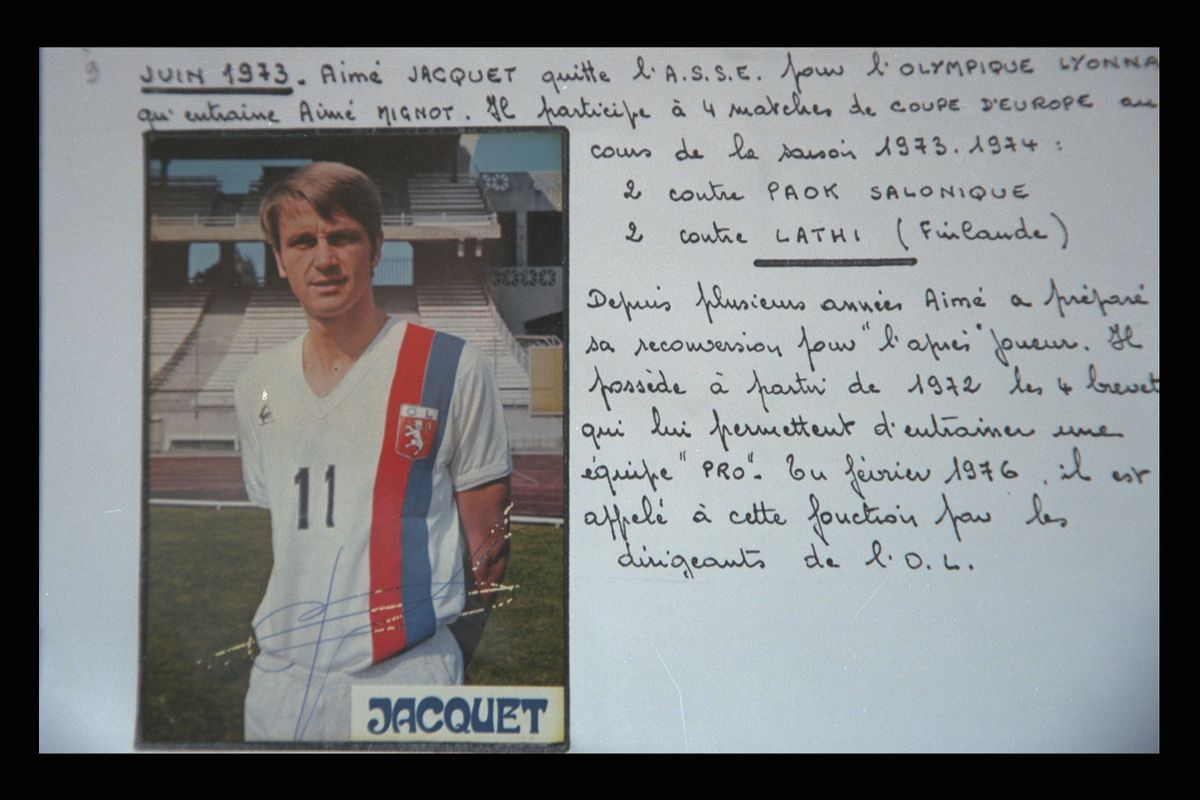 9
JUIN 1973. Aimé JACQUET quitte l'A.S.S.E. pour l'OLYMPIQUE LYONNA
qu'entraine Aimé MIGNOT. Il participe à 4 matches de COUPE D'EUROPE au
cours de la saison 1973.1974 :
2 contre PAOK SALONIQUE
2 contre LATHI (Finlande)
Depuis plusieurs années Aimé a préparé
sa reconversion pour "l'après" joueur. Il
possède à partir de 1972 les 4 brevet
qui lui permettent d'entrainer une
équipe "PRO". En février 1976, il est
appelé à cette fonction par les
dirigeants de l'O.L.
OL
11
JACQUET